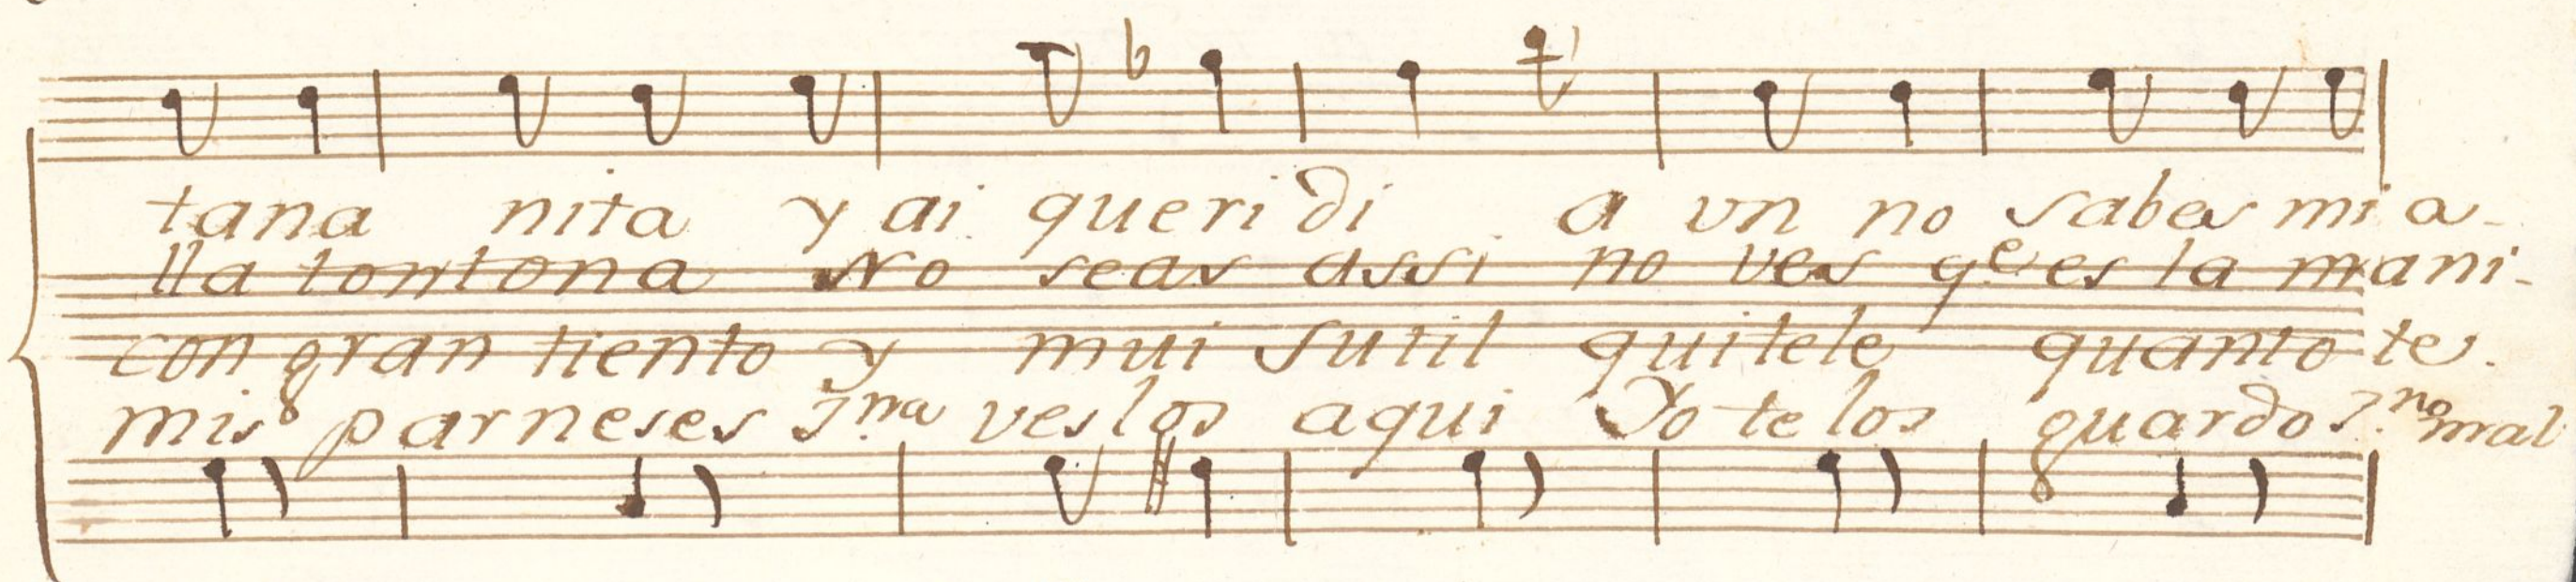 tana nita y ai queri di a un no sabes mi a-
lla tontona No seas assi no ves qe es la mani-
con gran tiento y mui sutil quitele quanto te
mis parneses veslos aqui Yo te los guardo mal